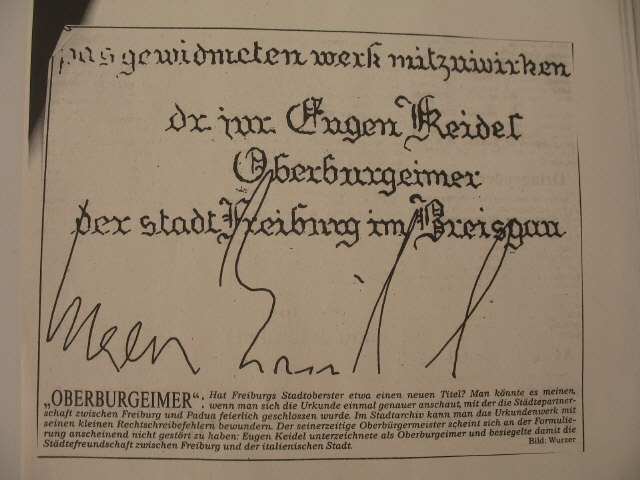 pas gewidmeten werk mitzuwirken
dr. jur. Eugen Keidel
Oberburgeimer
der stadt Freiburg im Breisgau
„OBERBURGEIMER“: Hat Freiburgs Stadtoberster etwa einen neuen Titel? Man könnte es meinen,
wenn man sich die Urkunde einmal genauer anschaut, mit der die Städtepartner-
schaft zwischen Freiburg und Padua feierlich geschlossen wurde. Im Stadtarchiv kann man das Urkundenwerk mit
seinen kleinen Rechtschreibefehlern bewundern. Der seinerzeitige Oberbürgermeister scheint sich an der Formulie-
rung anscheinend nicht gestört zu haben: Eugen Keidel unterzeichnete als Oberburgeimer und besiegelte damit die
Städtefreundschaft zwischen Freiburg und der italienischen Stadt. Bild: Wurzer